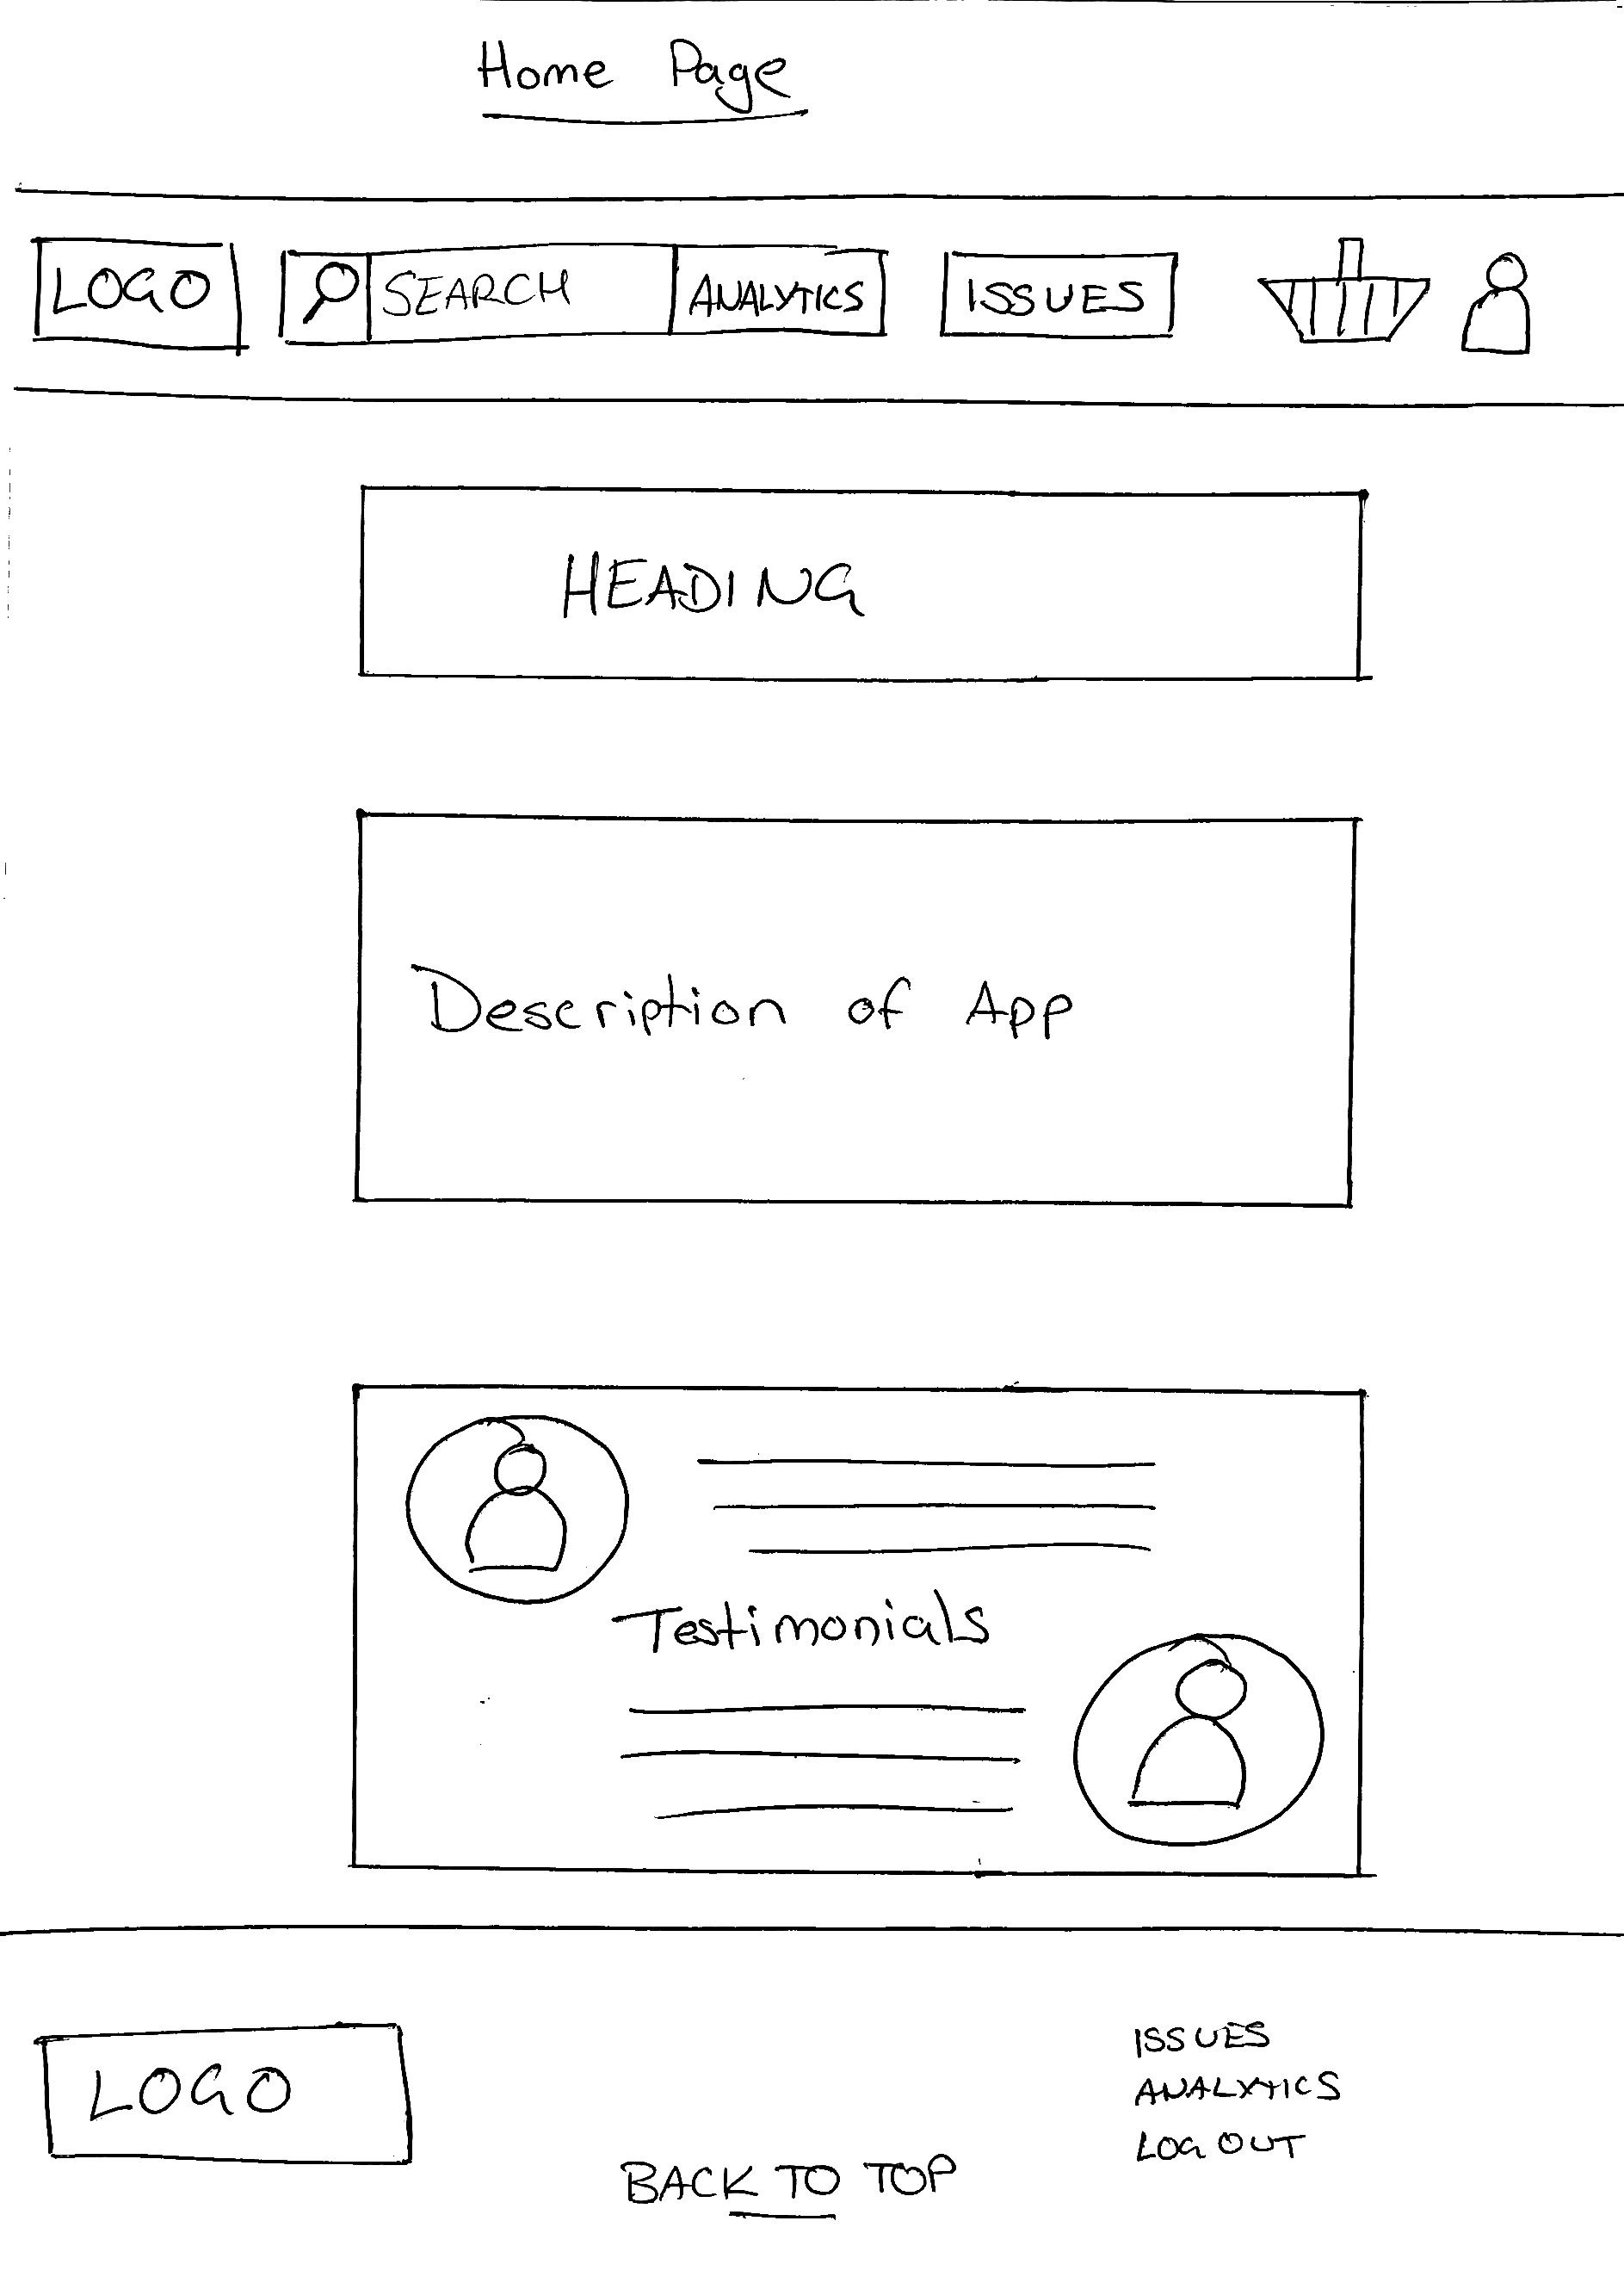 Home Page
LOGO SEARCH ANALYTICS ISSUES
HEADING
Description of App
Testimonials
LOGO
ISSUES
ANALYTICS
LOG OUT
BACK TO TOP